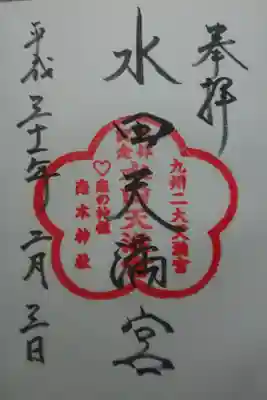 奉拝
水田天満宮
九州二大天満宮
恋の神社
恋木神社
平成三十一年二月三日